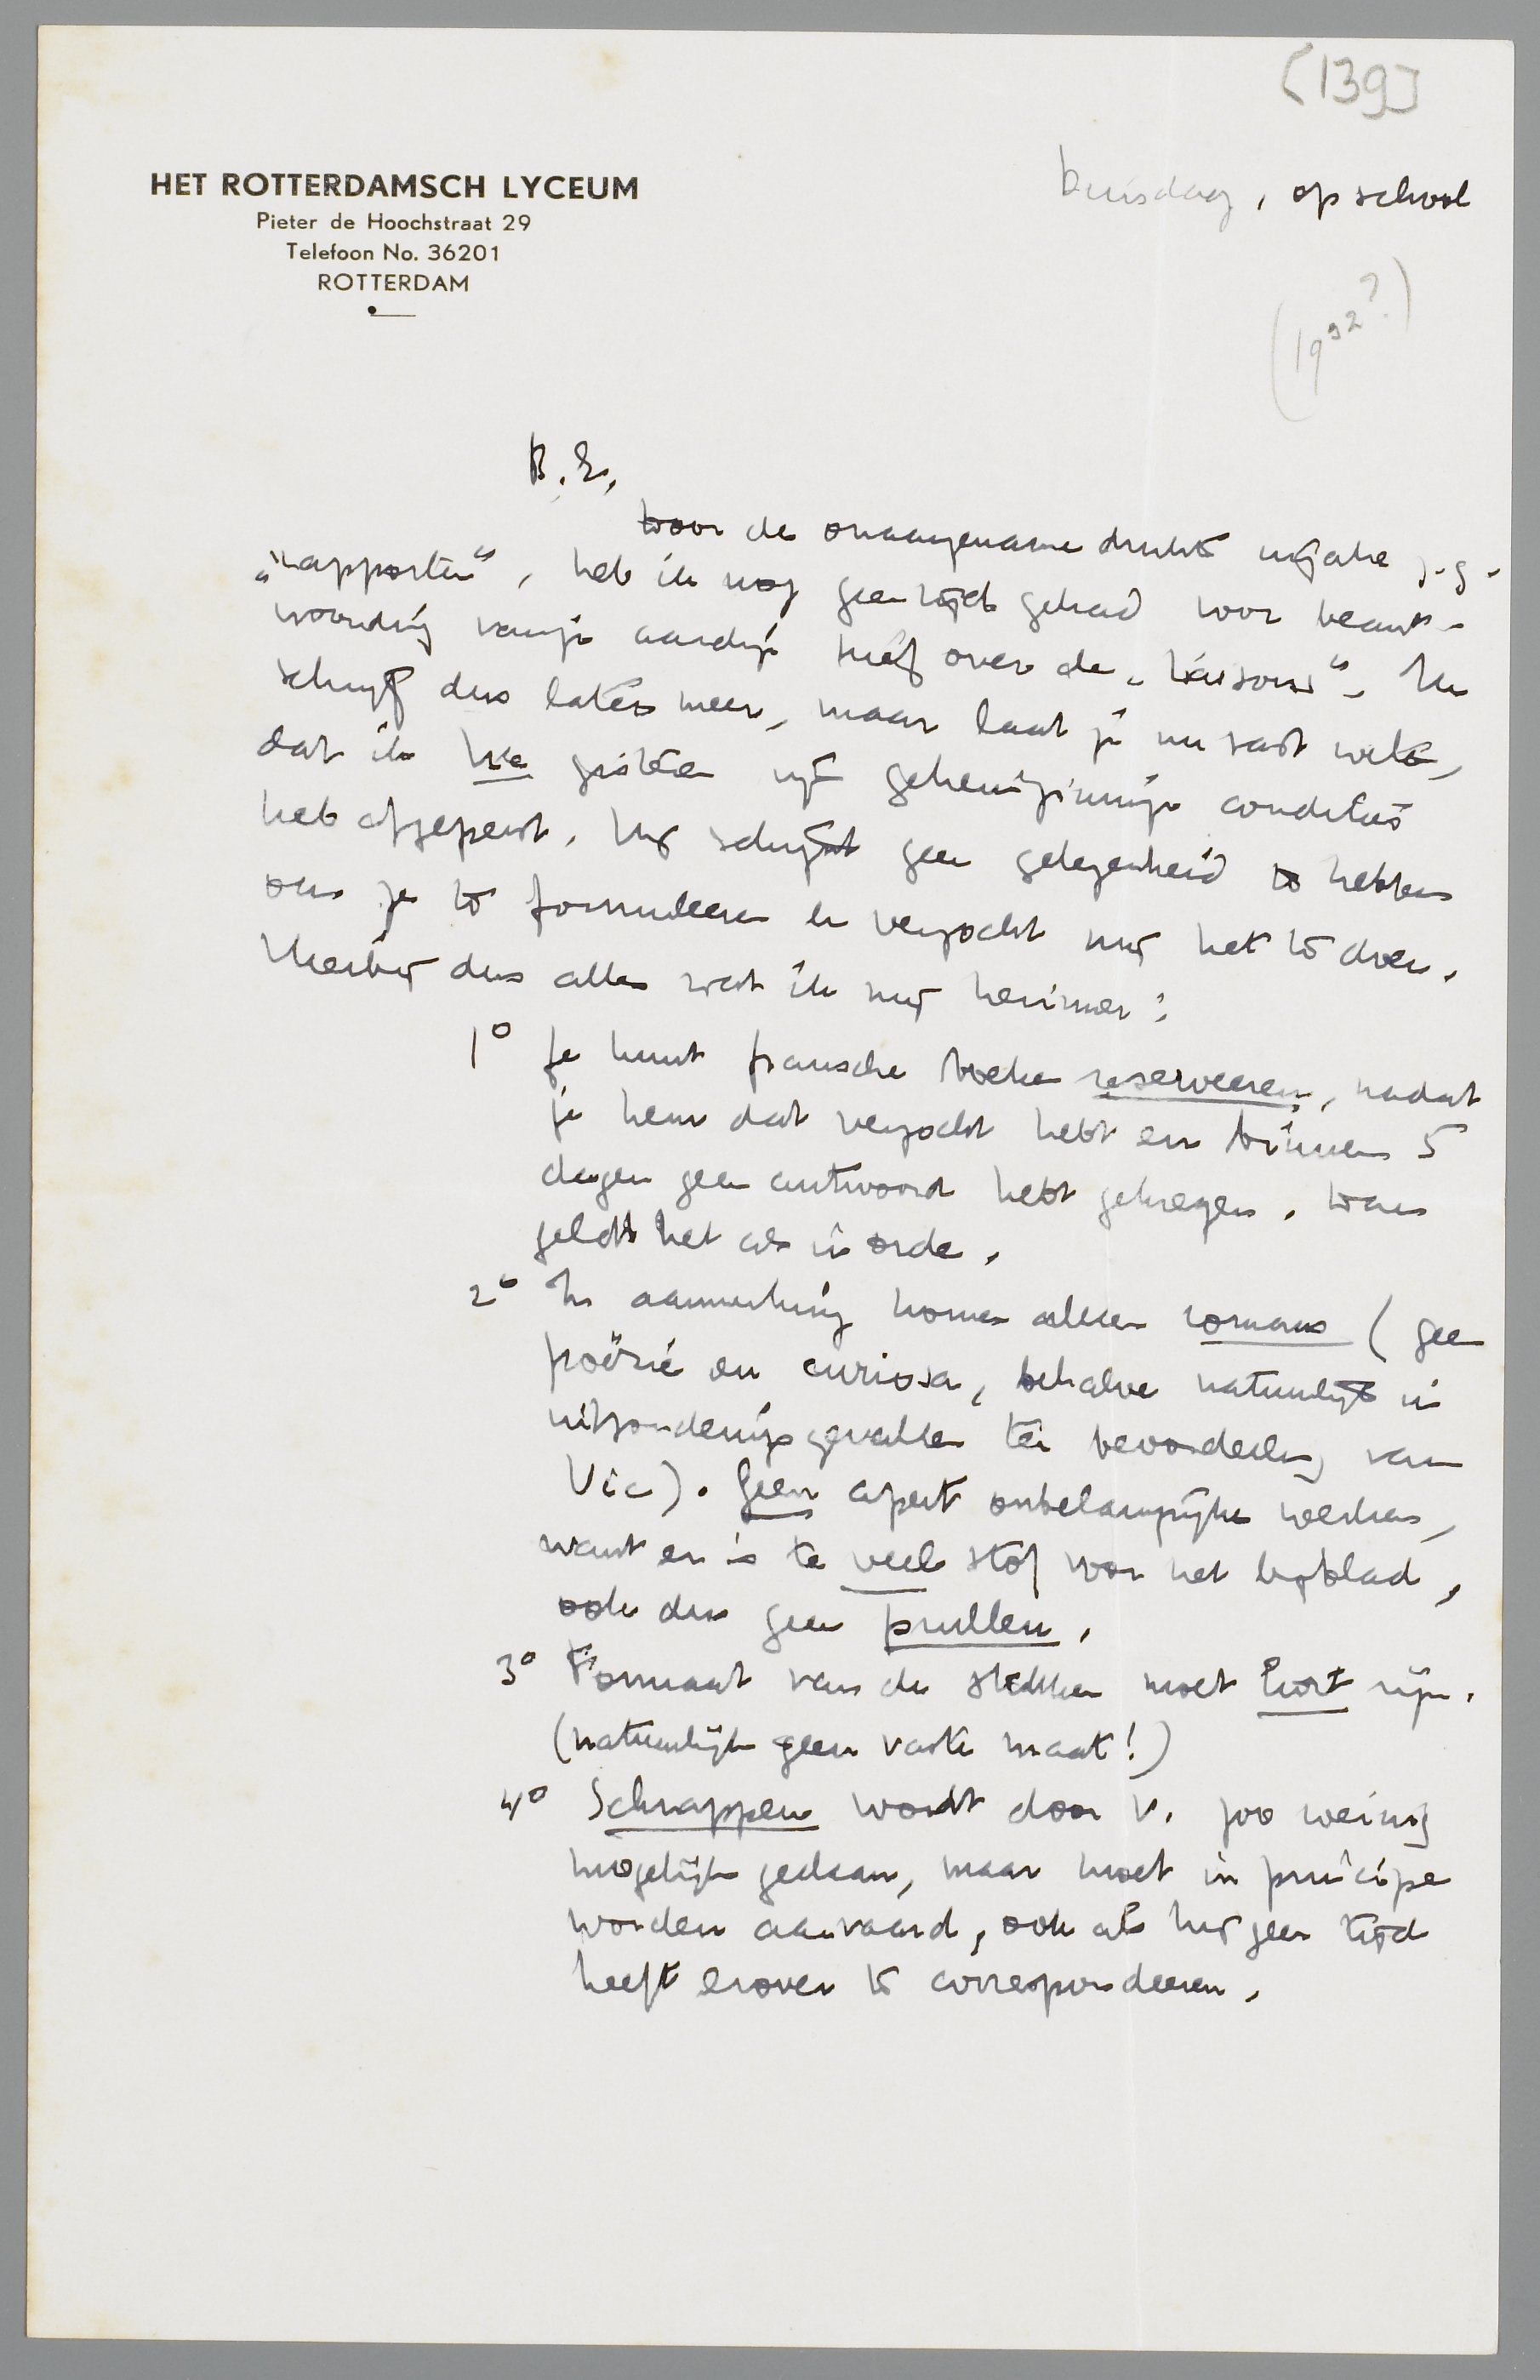 [139]
HET ROTTERDAMSCH LYCEUM
Pieter de Hoochstraat 29
Telefoon No. 36201
ROTTERDAM
Dinsdag, op school
(1932?)
B. E.,
Door de onaangename drukte inzake z.g.
„rapporten”, heb ik nog geen tijd gehad voor beant-
woording van je aardige brief over de „Liaisons”. Ik
schrijf dus later meer, maar laat je nu vast weten,
dat ik Vic gisteren zijn geheimzinnige condities
heb afgeperst. Hij schijnt geen gelegenheid te hebben
om ze te formuleeren en verzocht mij het te doen.
Hierbij dus alles wat ik mij herinner:
1° Je kunt fransche boeken reserveeren, nadat
je hem dat verzocht hebt en binnen 5
dagen geen antwoord hebt gekregen. Dan
geldt het als in orde.
2° In aanmerking komen alleen romans (geen
poëzie en curiosa, behalve natuurlijk in
uitzonderingsgevallen ter beoordeeling van
Vic). Geen apert onbelangrijke werken,
want er is te veel stof voor het bijblad,
ook dus geen prullen.
3° Formaat van de stukken moet kort zijn.
(natuurlijk geen vaste maat!)
4° Schrappen wordt door V. zoo weinig
mogelijk gedaan, maar moet in principe
worden aanvaard, ook als hij geen tijd
heeft erover te correspondeeren.